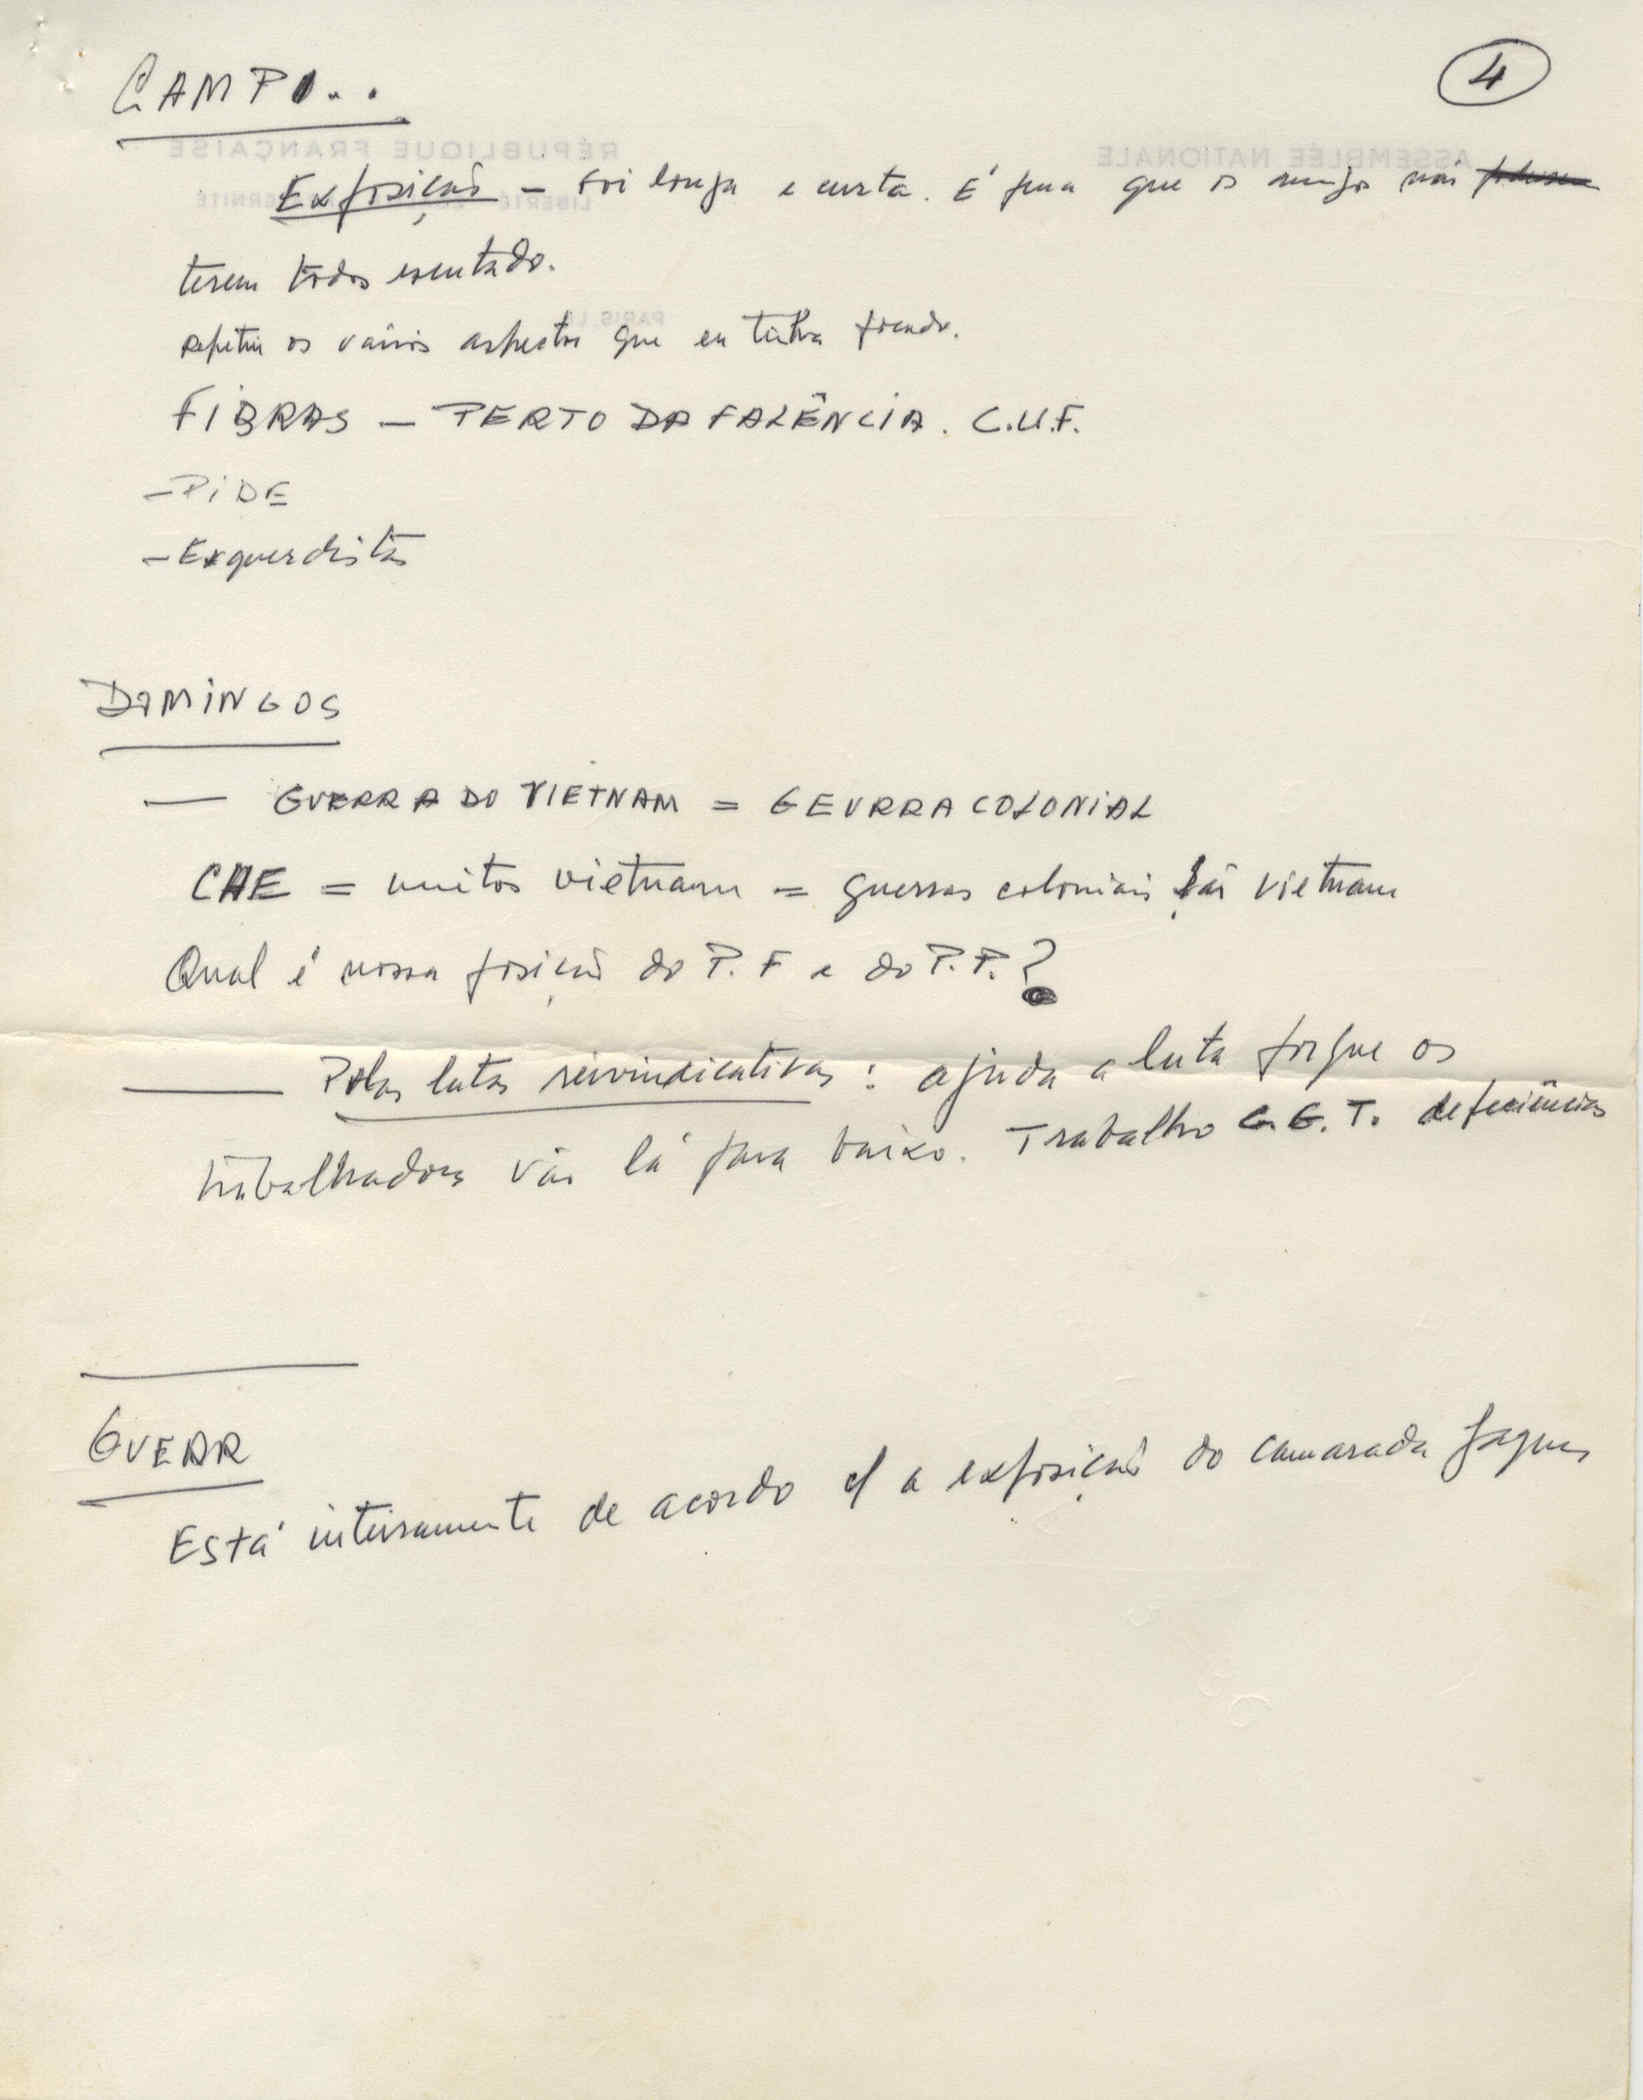 4
CAMPO..
Exposição - foi longa e curta. É pena que os amigos não
terem todos escutado.
Repetiu os vários aspectos que eu tinha focado.
FIBRAS - PERTO DA FALÊNCIA. C.U.F.
- PIDE
- Esquerdistas
DOMINGOS
— GUERRA DO VIETNAM = GEURRA COLONIAL
CHE = muitos vietnam = guerras coloniais são vietnam
Qual é nossa posição do P. F e do P.P.?
— Pelas lutas reivindicativas : ajuda a luta porque os
trabalhadores vão lá para baixo. Trabalho C.G.T. deficiências
GUERR
Está inteiramente de acordo c/ a exposição do camarada Jaques
RÉPUBLIQUE FRANÇAISE
ASSEMBLÉE NATIONALE